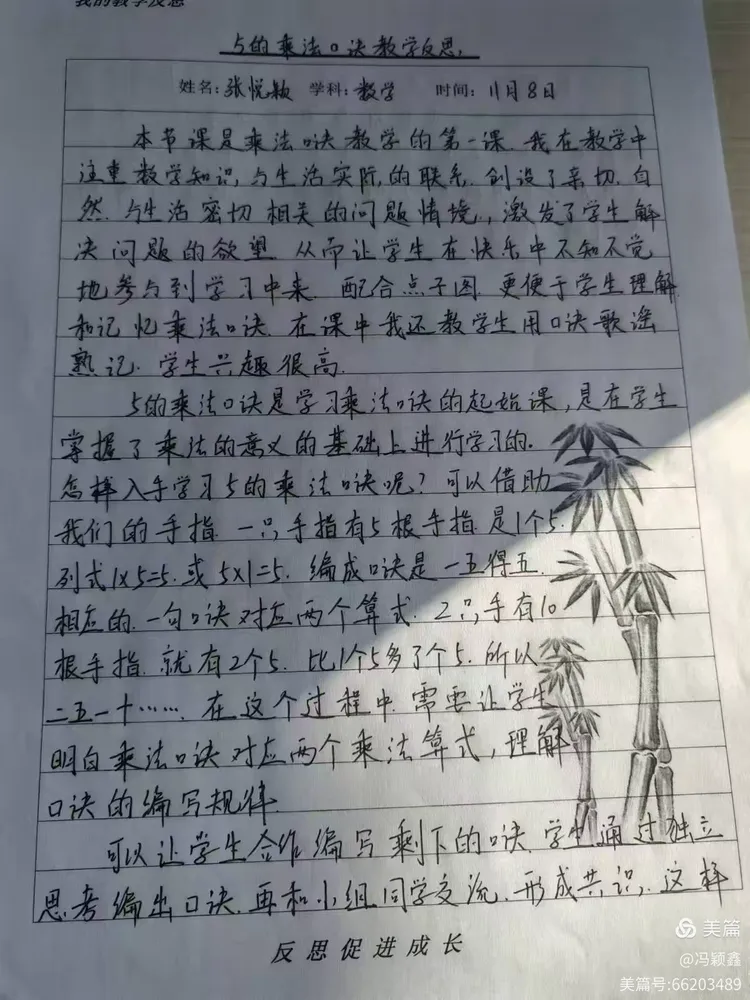 我的教学反思
5的乘法口诀教学反思.
姓名:张悦颖 学科:数学 时间:11月8日
本节课是乘法口诀教学的第一课.我在教学中
注重数学知识,与生活实际,的联系.创设了亲切.自
然.与生活密切相关的问题情境,,激发了学生解
决问题的欲望.从而让学生在快乐中不知不觉
地参与到学习中来.配合点子图.更便于学生理解
和记忆乘法口诀.在课中我还教学生用口诀歌谣
熟记.学生兴趣很高.
5的乘法口诀是学习乘法口诀的起始课,是在学生
掌握了乘法的意义的基础上进行学习的.
怎样入手学习5的乘法口诀呢?可以借助
我们的手指.一只手指有5根手指.是1个5.
列式1×5=5.或5×1=5.编成口诀是一五得五.
相应的.一句口诀对应两个算式.2只手有10
根手指.就有2个5.比1个5多了个5.所以
二五一十…….在这个过程中.需要让学生
明白乘法口诀对应两个乘法算式,理解
口诀的编写规律.
可以让学生合作编写剩下的口诀.学生通过独立
思考编出口诀.再和小组同学交流.形成共识.这样
反思促进成长
美篇
@冯颖鑫
美篇号:66203489